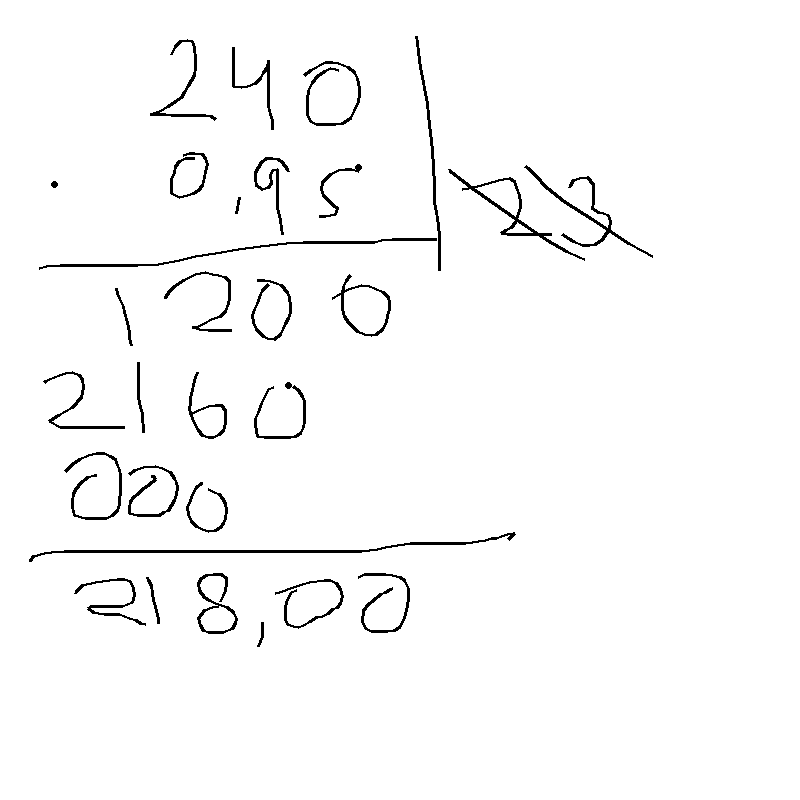 240
· 0,95
23
1200
2160
000
218,00